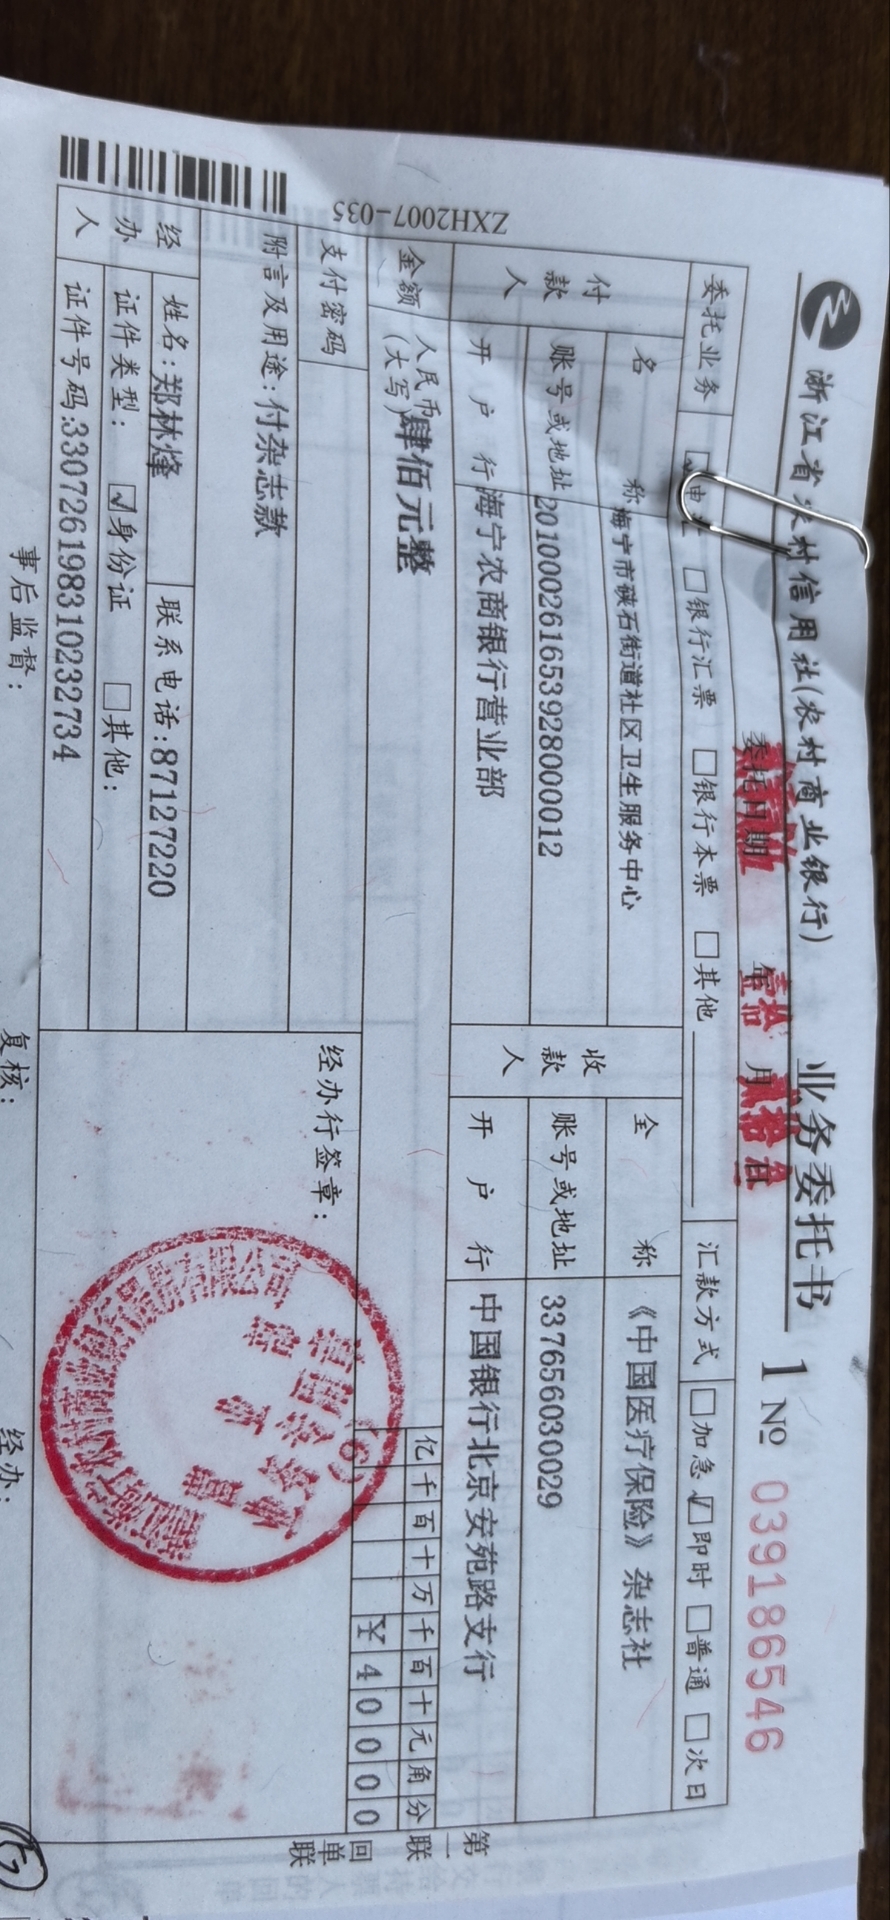 浙江省农村信用社(农村商业银行) 业务委托书 1 № 0391865​46
委托日期 年 壹拾 月 贰拾 日
委托业务 ☑电 □银行汇票 □银行本票 □其他 汇款方式 □加急 ☑即时 □普通 □次日
付款人 名称 海宁市硖石街道社区卫生服务中心
账号或地址 201000261653928000012
开户行 海宁农商银行营业部
收款人 全称 《中国医疗保险》杂志社
账号或地址 337656030029
开户行 中国银行北京安苑路支行
金额 人民币(大写) 肆佰元整
亿千百十万千百十元角分
¥40000
支付密码
附言及用途:付杂志款
经办行签章:
(6)
经办人 姓名:郑林烽 联系电话:87127220
证件类型: ☑身份证 □其他:
证件号码:330726198310232734
事后监督: 复核: 经办:
ZXH2007-035
第一联 回单联